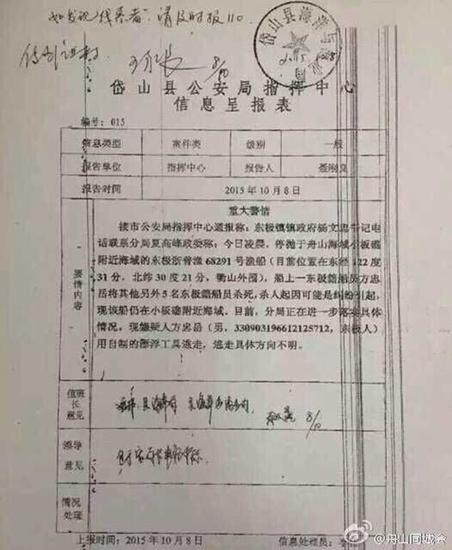 如发现线索者，请及时报110
8/10
岱山县公安局指挥中心
信息呈报表
编号：015
信息类型 案件类 级别 一般
报告单位 指挥中心 报告人
报告时间 2015年10月8日
重大警情
接市公安局指挥中心通报称：东极镇镇政府杨文忠书记电
话联系分局夏高峰政委称：今日凌晨，停抛于舟山海域小板礁
附近海域的东极浙普渔68291号渔船（目前位置在东经122度
31分，北纬30度21分，衢山外围），船上一东极籍船员方忠
岳将其他另外5名东极籍船员杀死，杀人起因可能是纠纷引起，
现该船仍在小板礁附近海域。目前，分局正在进一步落实具体
情况，现嫌疑人方忠岳（男，330903196612125712，东极人）
用自制的漂浮工具逃走，逃走具体方向不明。
要情内容
值班长意见
8/10
领导意见
情况处理
上报时间：2015年10月8日 信息处理员：
@舟山同城会